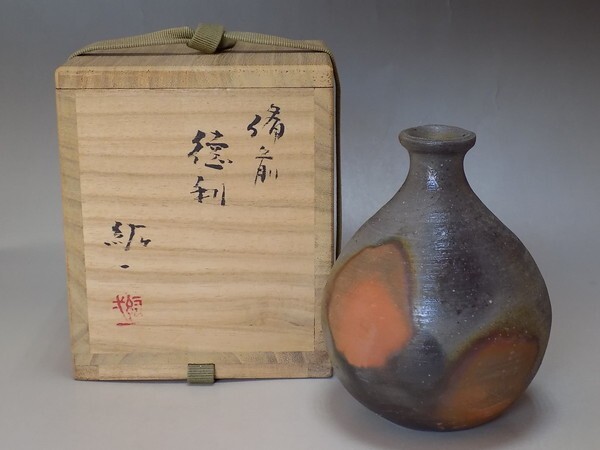 備前
徳利
紘一